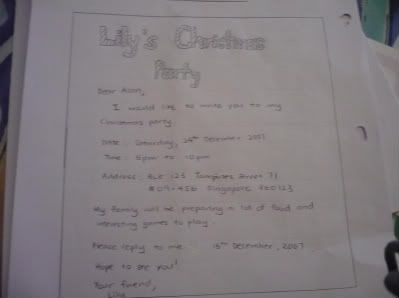 Lily's Christmas
Party
Dear Alan,
I would like to invite you to my
Christmas party.
Date: Saturday, December 2007
Time: 5pm to 10pm
Address: BLK 123 Tampines Street 71
#09-456 Singapore
My family will be preparing a lot of food and
interesting games to play.
Please reply to me 15th December, 2007
Hope to see you!
Your friend,
Lily